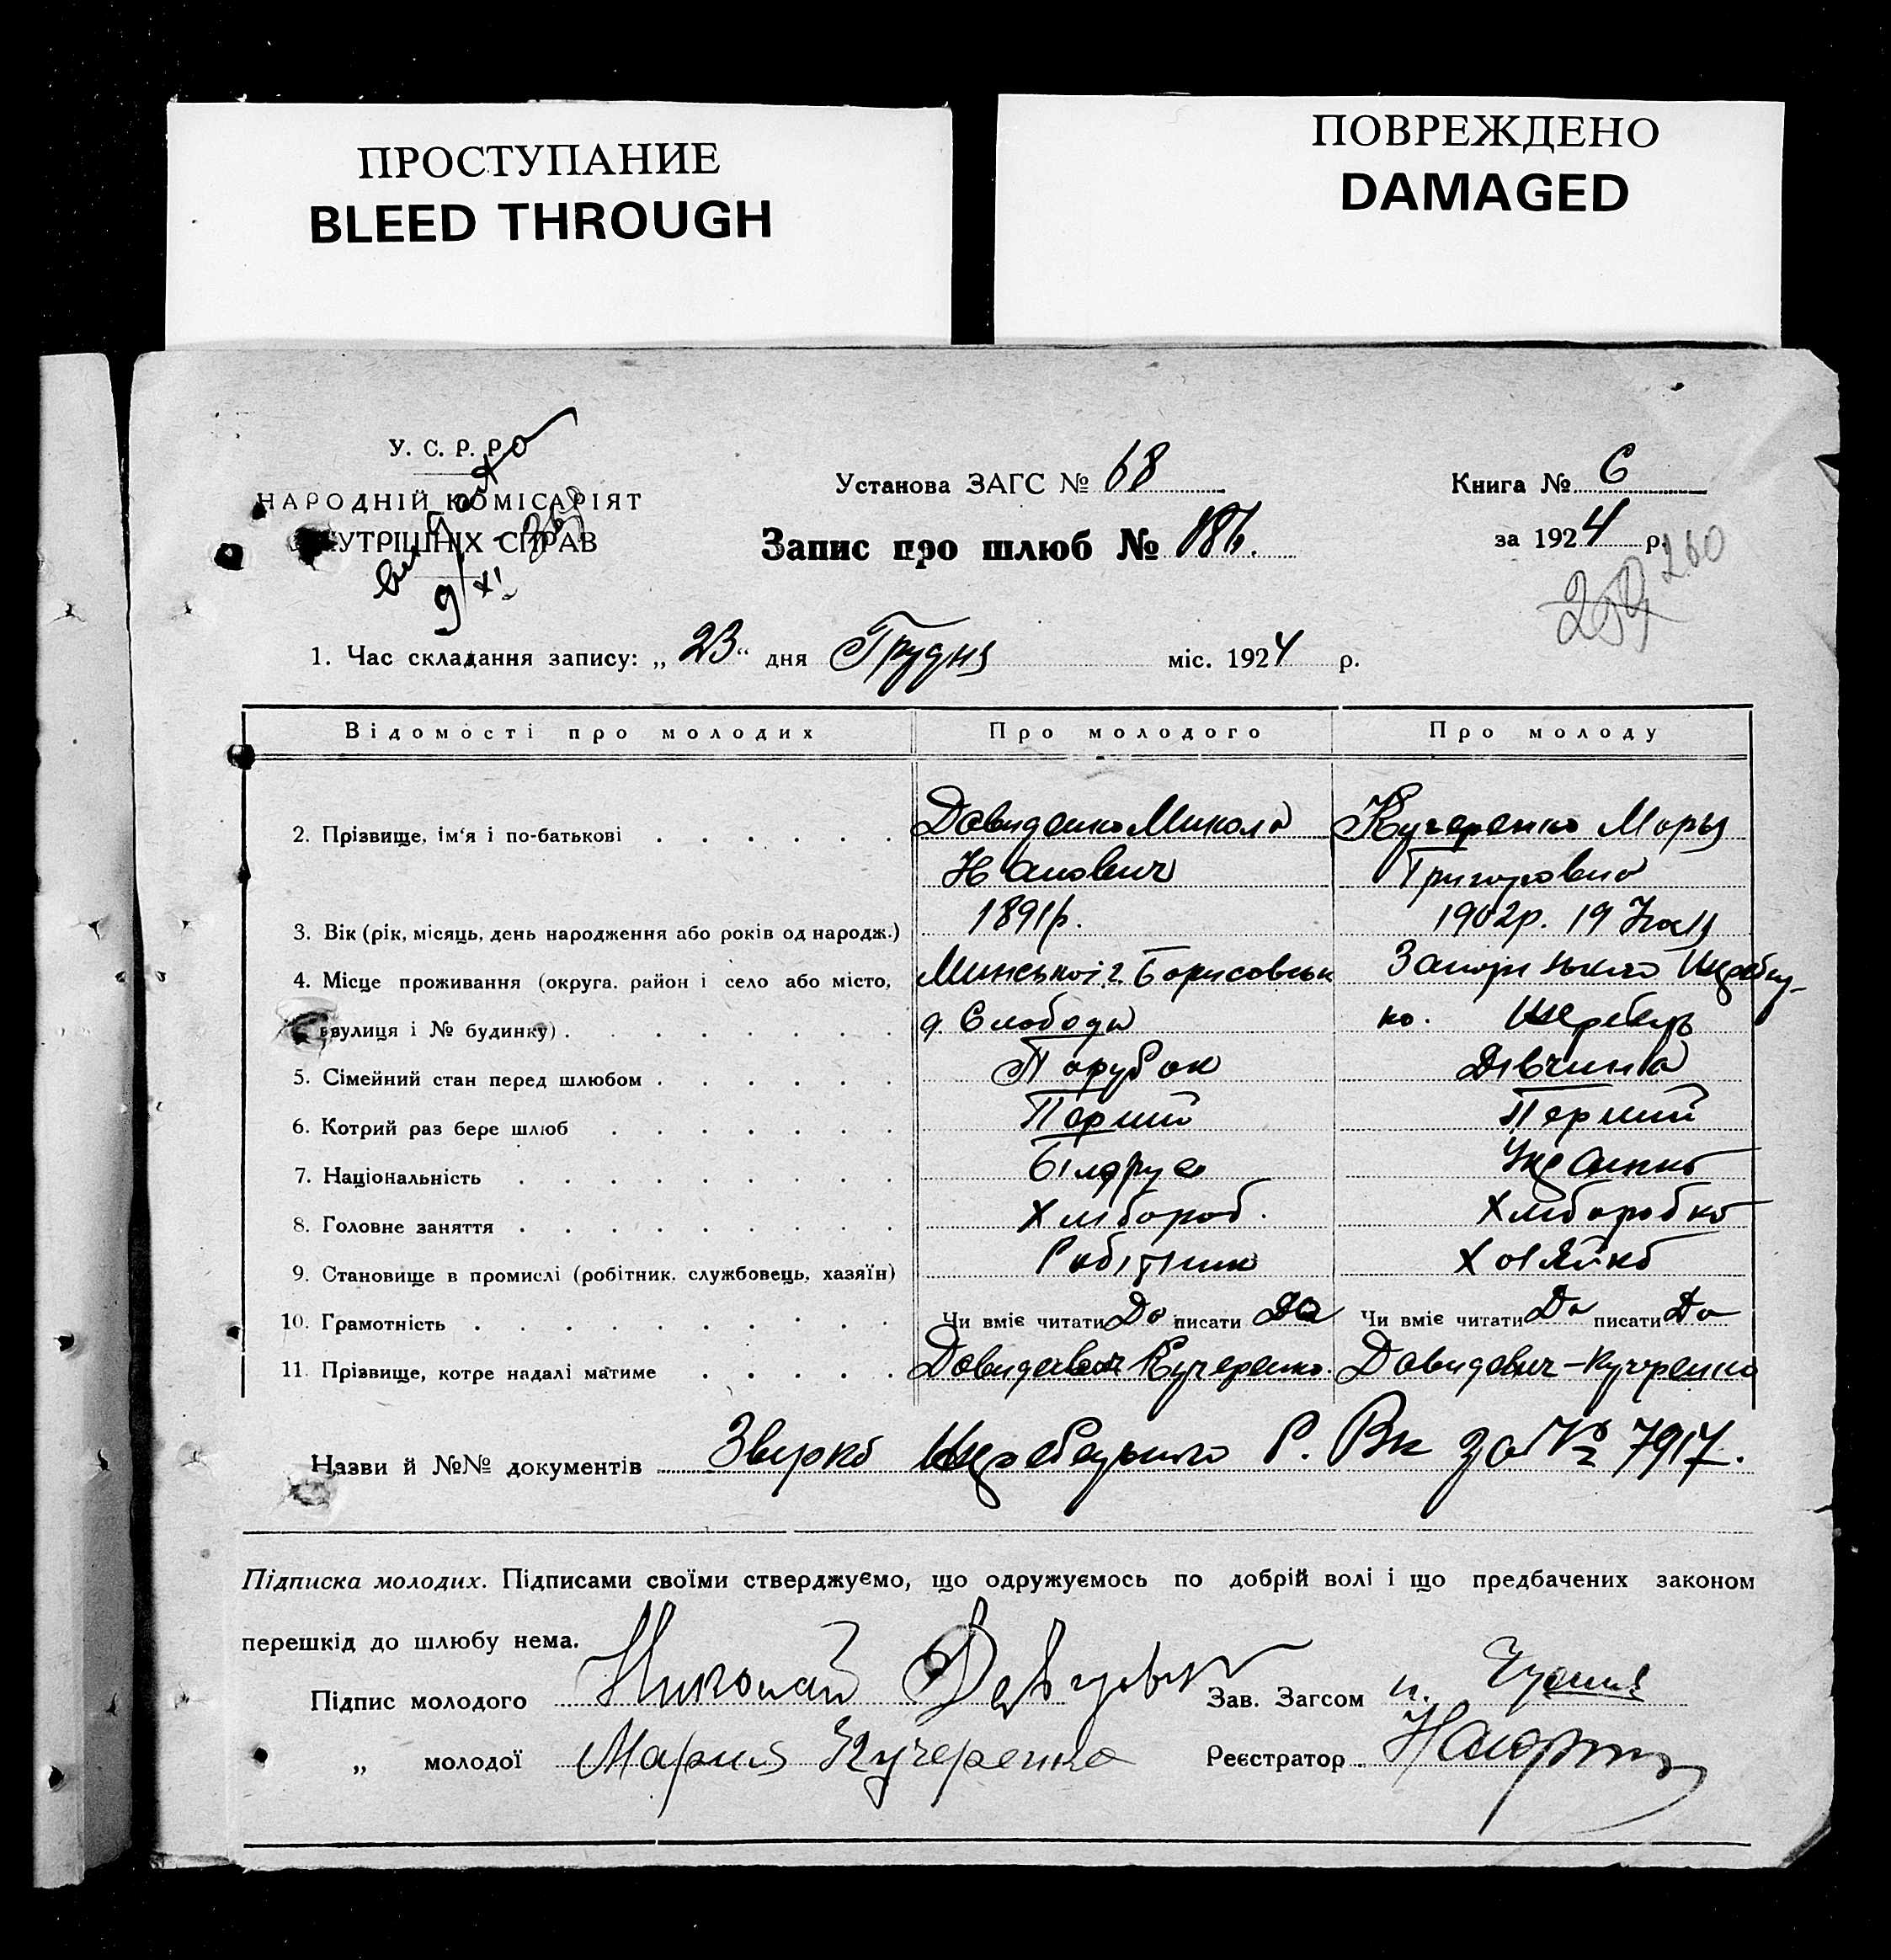 ПРОСТУПАНИЕ
BLEED THROUGH
ПОВРЕЖДЕНО
DAMAGED
У. С. Р. Р.
НАРОДНІЙ КОМІСАРІЯТ
УТРІШНІХ СПРАВ
9/XI
Установа ЗАГС № 68
Книга № 6
Запис про шлюб № 186.
за 1924 р.
259 260
1. Час складання запису: „ 23 “ дня Грудня міс. 1924 р.
Відомості про молодих Про молодого Про молоду
2. Прізвище, ім'я і по-батькові Микола Кучеренко Марья
Григоровна
3. Вік (рік, місяць, день народження або років од народж.) 1891р. 1902р. 19
4. Місце проживання (округа, район і село або місто, Минської г. Борисовськ
вулиця і № будинку) д. Слобода
5. Сімейний стан перед шлюбом Парубок Дівчина
6. Котрий раз бере шлюб Перший Перший
7. Національність Білорус Украинка
8. Головне заняття Хлібороб. Хліборобка
9. Становище в промислі (робітник, службовець, хазяїн) Робітник Хозяйка
10. Грамотність Чи вміє читати Да писати Да Чи вміє читати Да писати Да
11. Прізвище, котре надалі матиме Давидович Кучеренко. Давидович-Кучеренко
Назви й №№ документів Р. Вк за № 7917.
Підписка молодих. Підписами своїми стверджуємо, що одружуємось по добрій волі і що предбачених законом
перешкід до шлюбу нема.
Підпис молодого Николай Зав. Загсом
„ молодої Мария Кучеренко Реєстратор